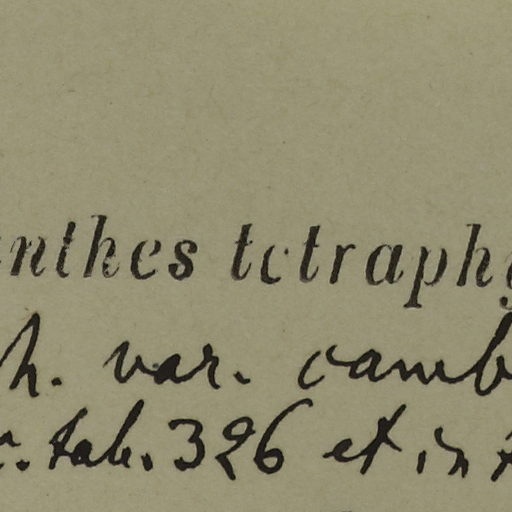 nthes tetraphy
h. var. camb
c. tab. 326 et in